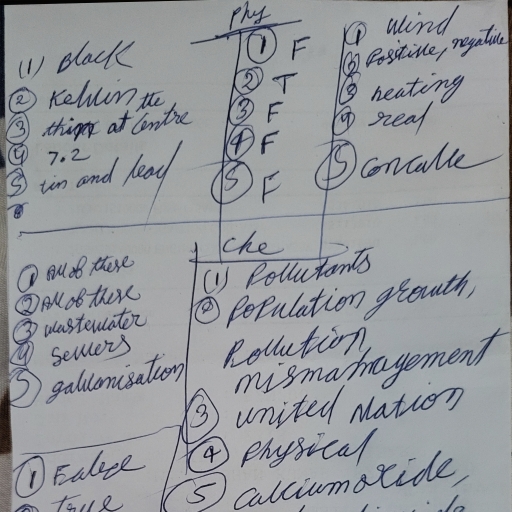 Phy
(1) Black
② Kelvin the
③ thin at Centre
④ 7.2
⑤ tin and lead
① F
② T
③ F
④ F
⑤ F
① Wind
② Positive, negative
③ heating
④ real
⑤ Concave
Che
① All of these
② All of these
③ wastewater
④ Sewers
⑤ galvanisation
(1) Pollutants
② Population growth,
Pollution,
mismamagement
③ United Nation
④ Physical
⑤ Calciumoxide,
① False
② True